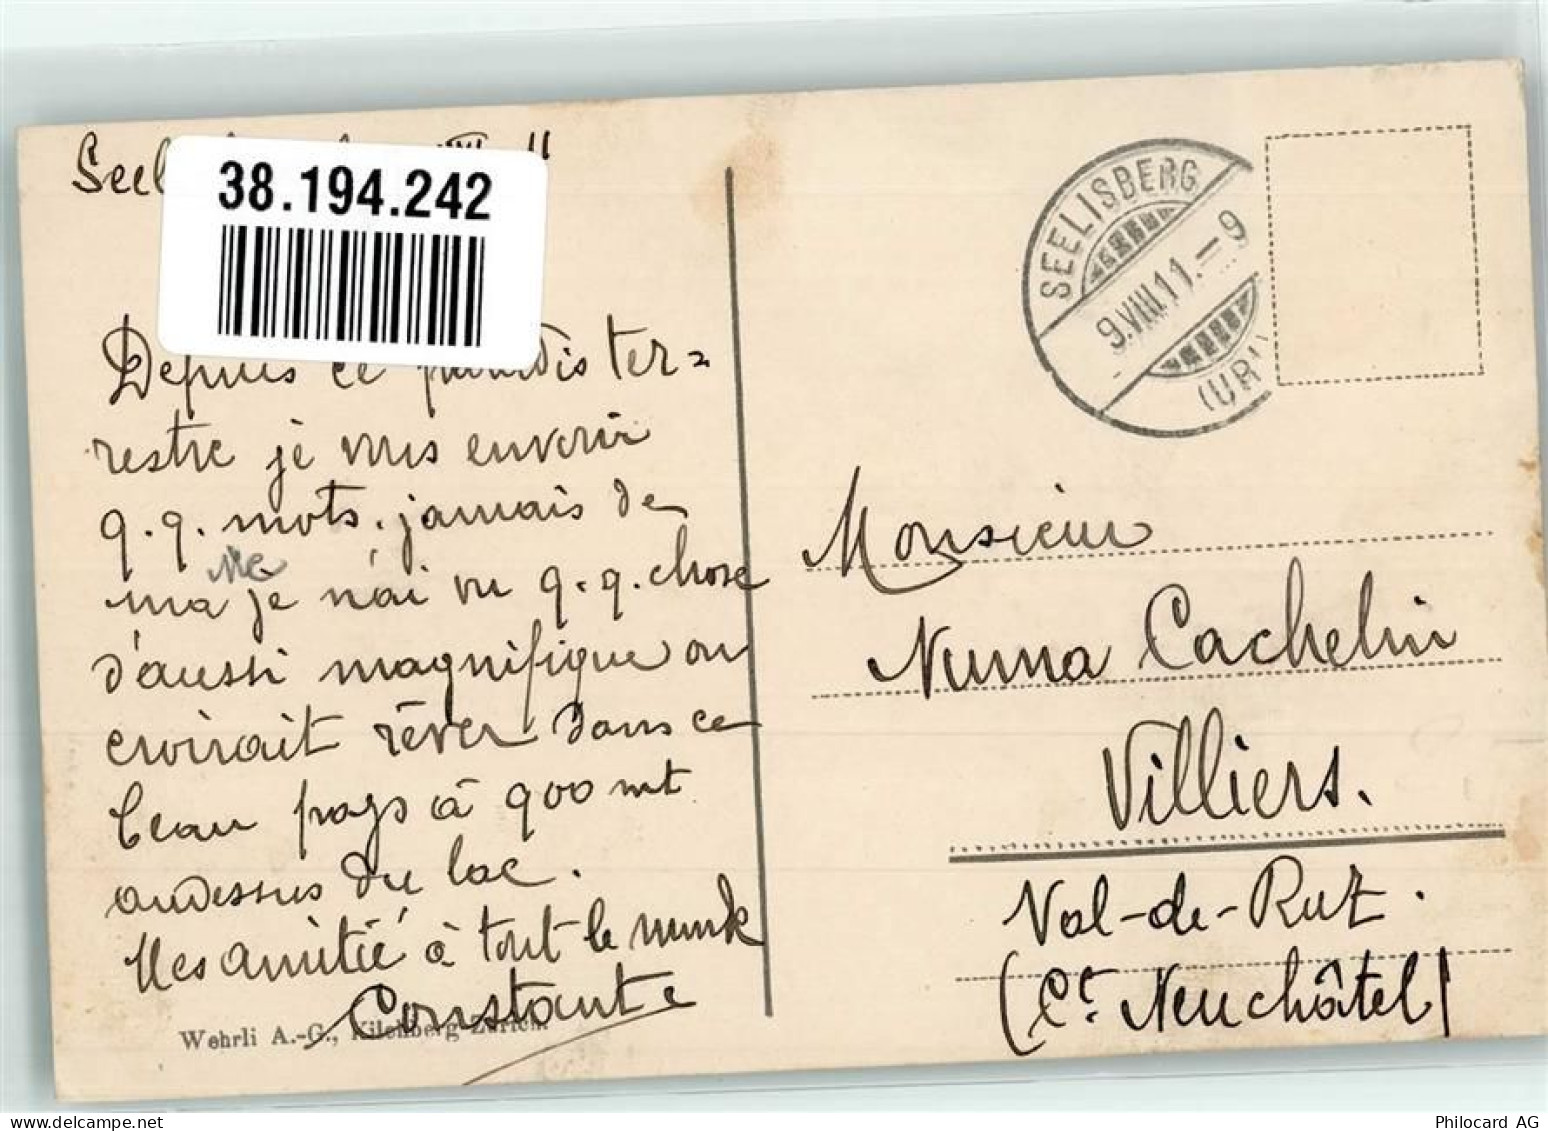 38.194.242
Depuis ce paradis ter=
restre je vous envoie
q.q. mots. jamais de
ma vie je n'ai vu q.q. chose
d'aussi magnifique on
croirait rêver dans ce
beau pays à 900 mt
audessus du lac.
Mes amitié à tout le monde
Constante
Wehrli A.-G., Kilchberg-Zürich.
SEELISBERG
9.VIII.11.-9
(URI)
Monsieur
Numa Cachelin
Villiers.
Val-de-Ruz.
(Ct. Neuchâtel)
Philocard AG